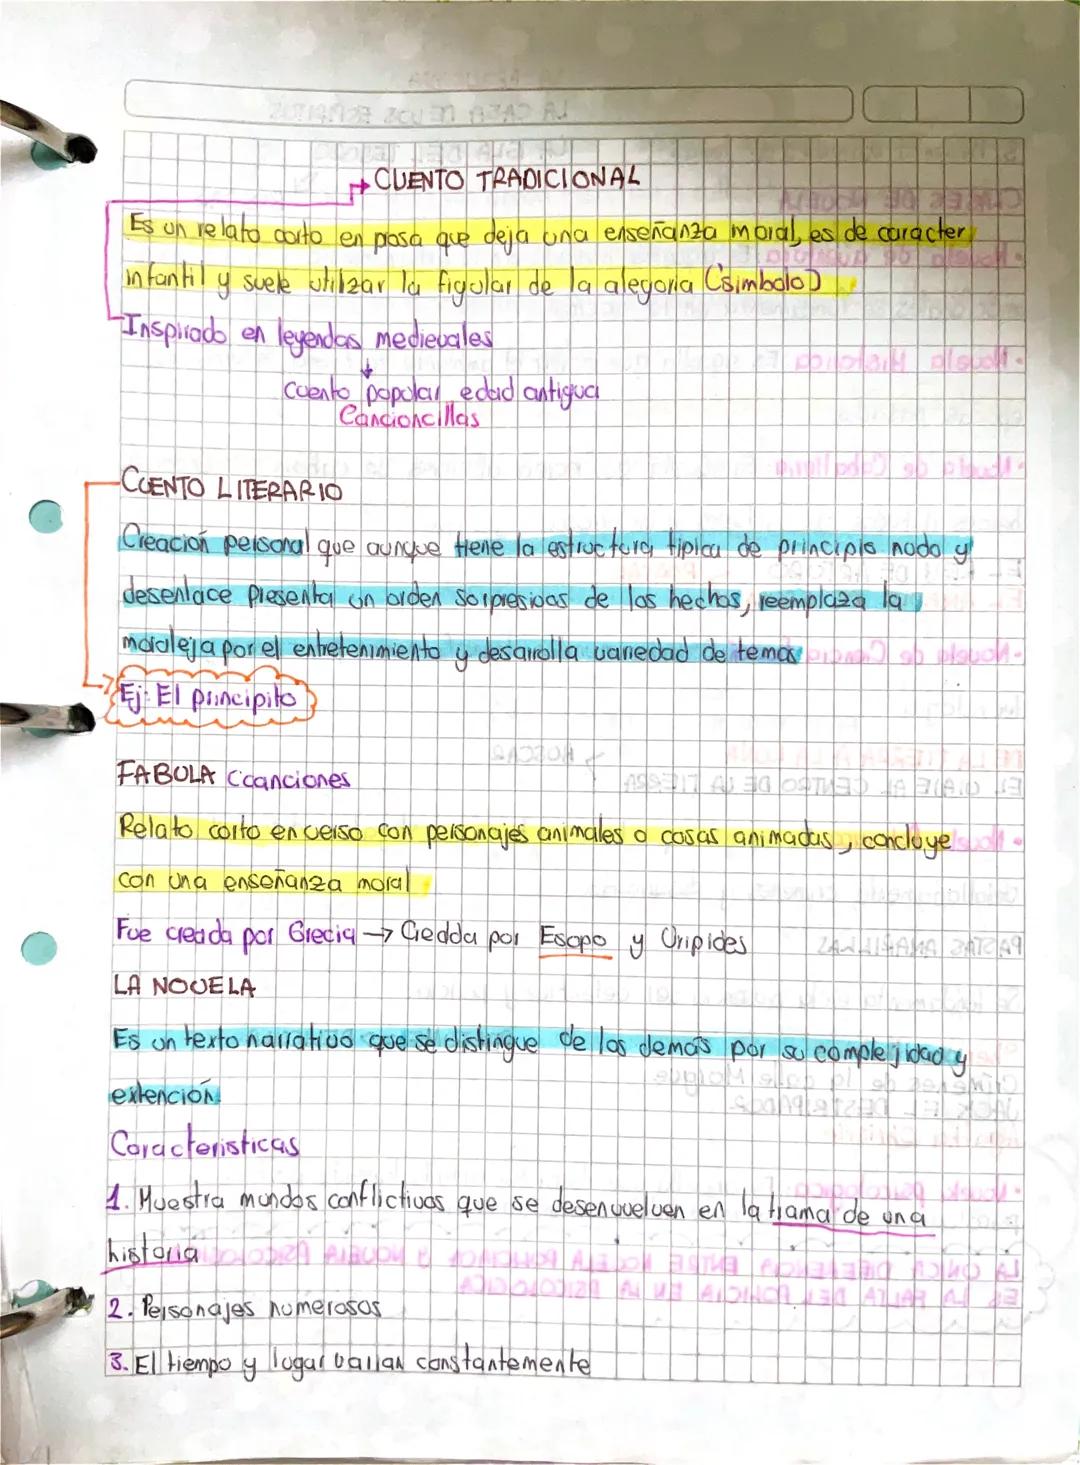 CUENTO TRADICIONAL
Es un relato corto en prosa que deja una enseñanza moral, es de caracter
infantil y suele utilizar la figular de la alegoria (simbolo)
Inspirado en leyendas medievales
cuento popular edad antigua
Cancioncillas
CUENTO LITERARIO
Creación personal que aunque tiene la estructura tipica de principio nodo y
desenlace presenta un orden sorpresivos de los hechos, reemplaza la
moraleja por el entretenimiento y desarrolla variedad de temas
Ej: El principito
FABULA (canciones
Relato corto en verso con personajes animales o cosas animadas, concluye
con una enseñanza moral
Fue creada por Grecia → Credda por Esopo y Uripides
LA NOVELA
Es un texto narrativo que se distingue de los demás por su complejidad y
extención.
Caracteristicas
1. Muestra mundos conflictivos que se desenvuelven en la trama de una
historia
2. Personajes numerosos
3. El tiempo y lugar varian constantemente